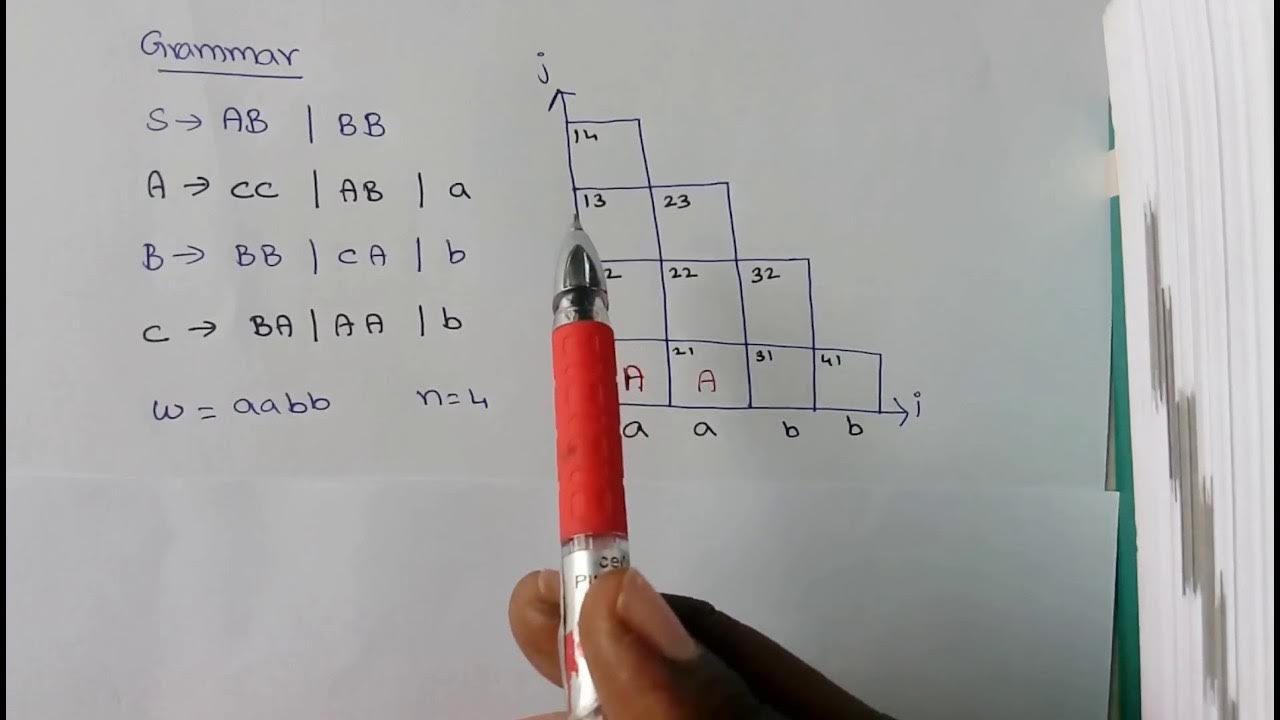 Grammar
S → AB | BB
A → CC | AB | a
B → BB | CA | b
C → BA | AA | b
w = aabb n=4
j
14
13 23
2 22 32
21 31 41
A A
i
a a b b